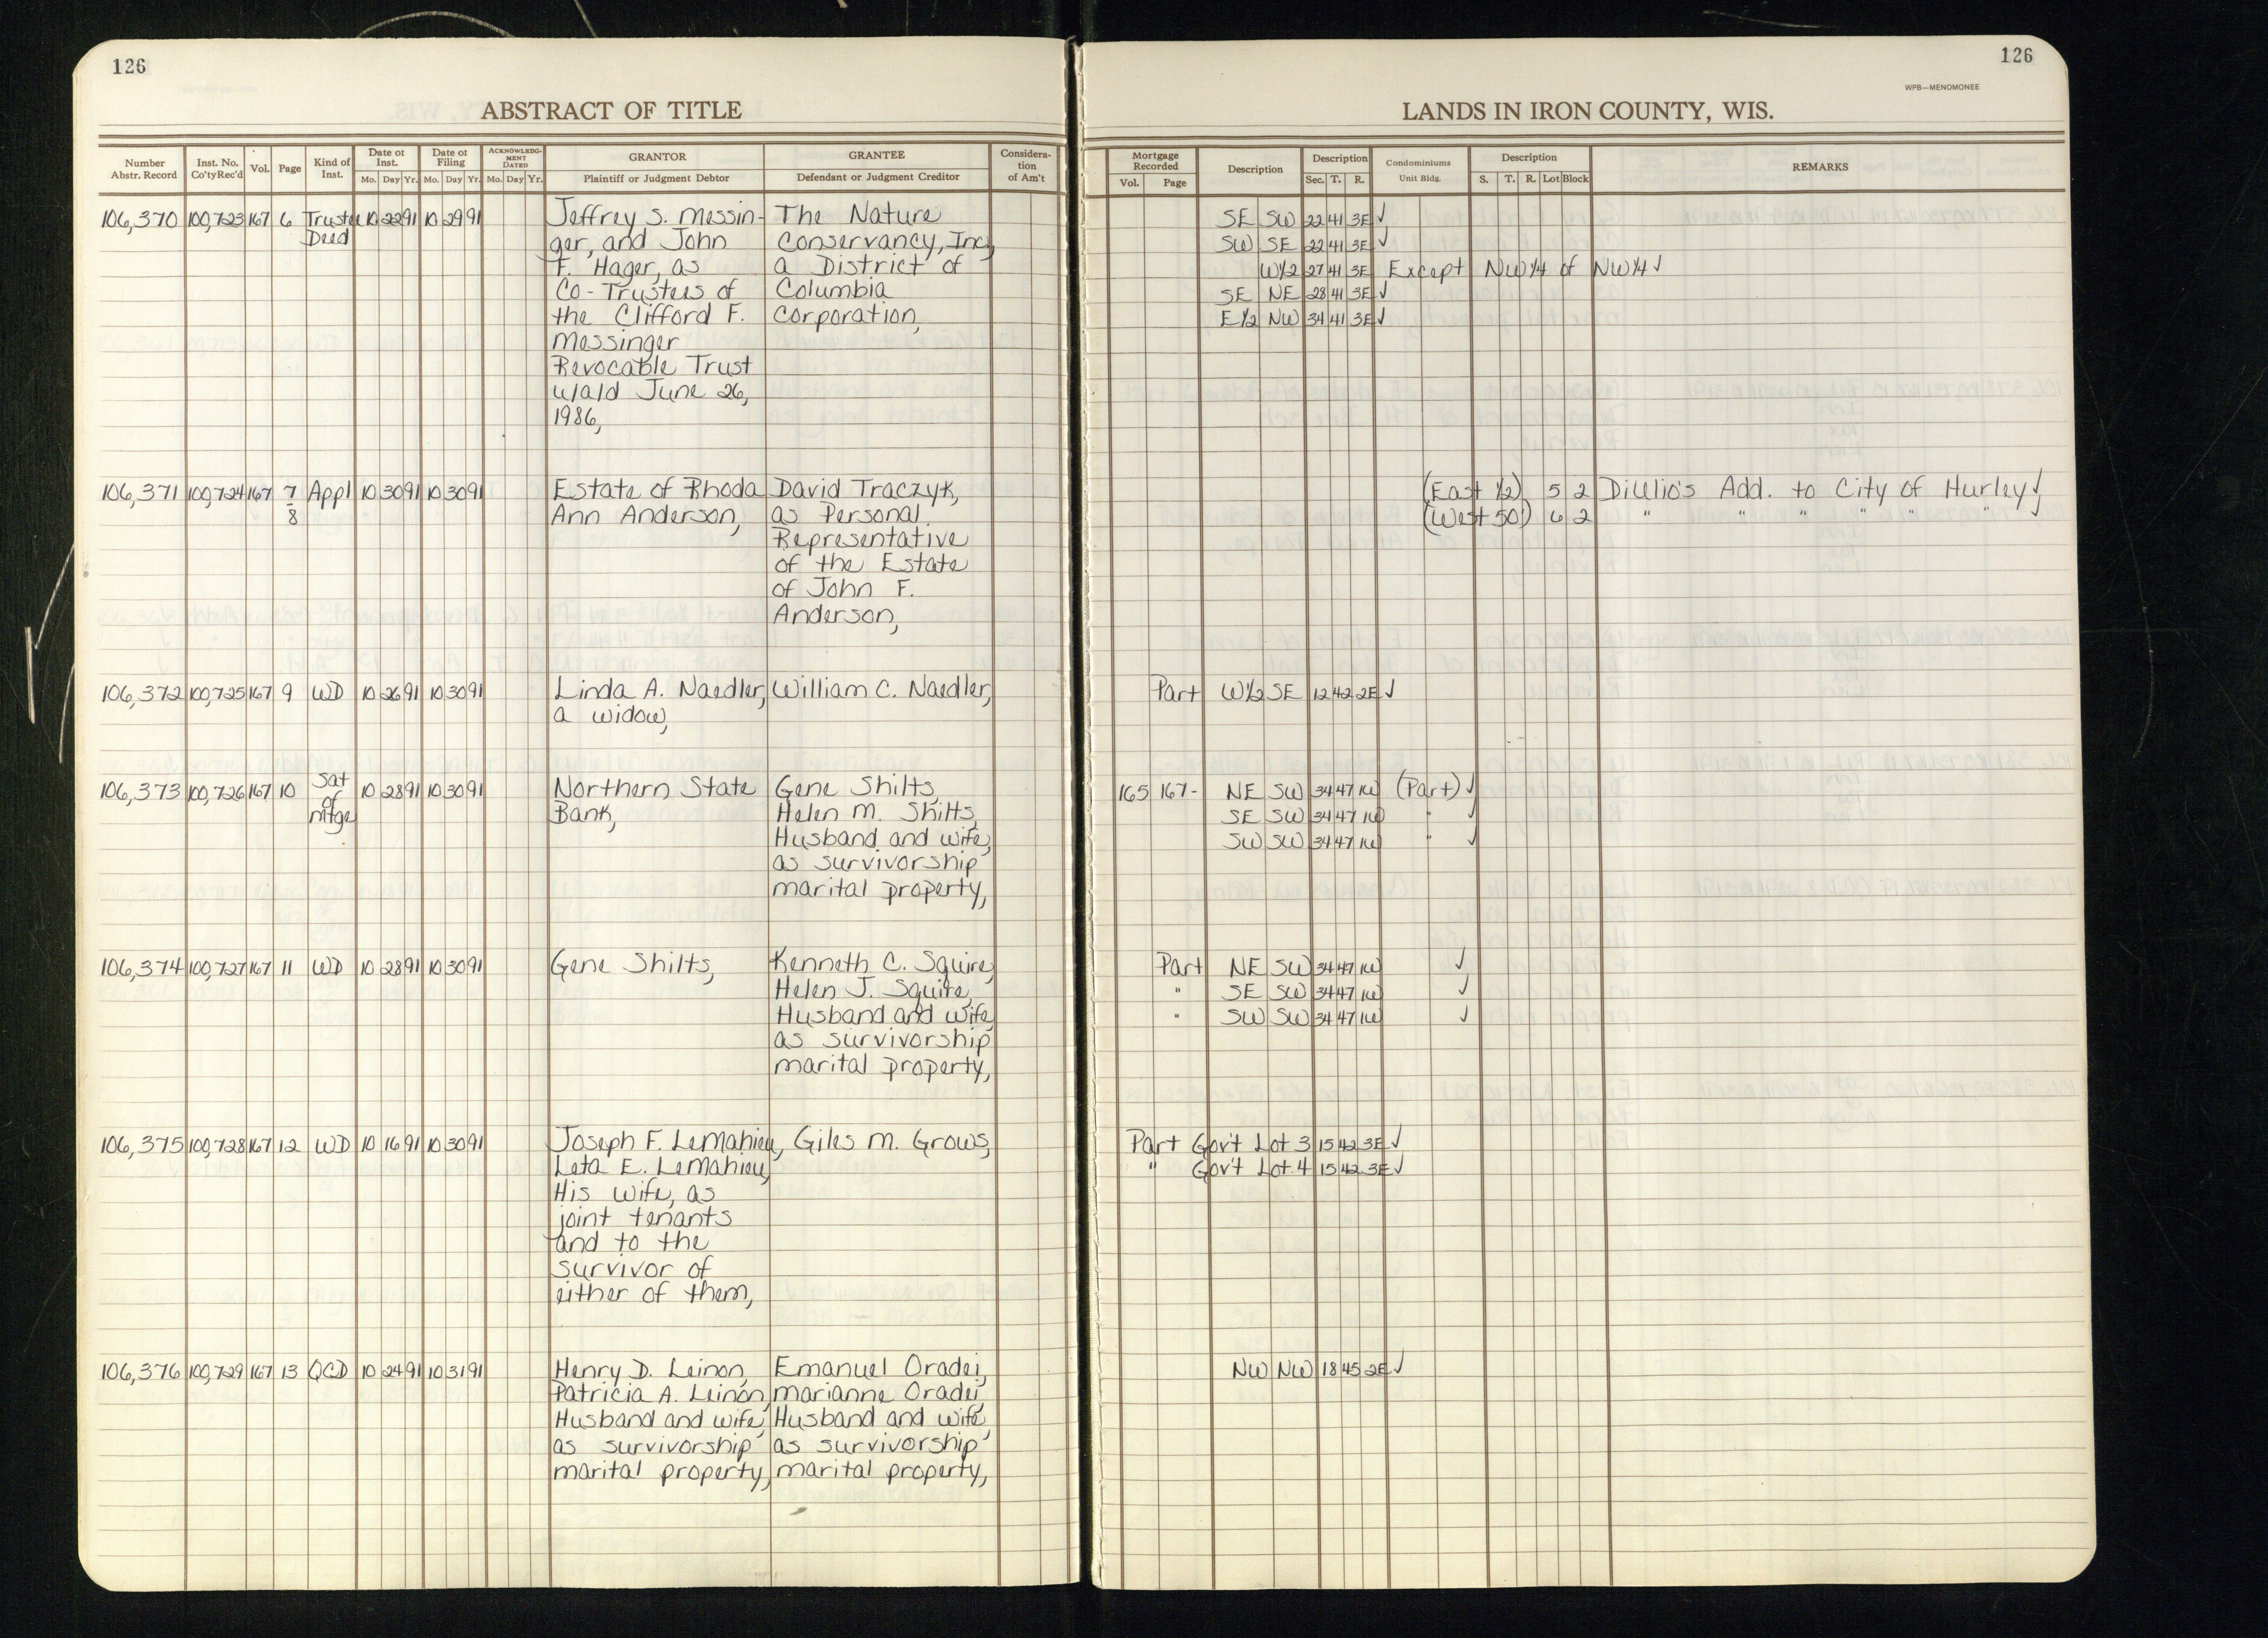 126
ABSTRACT OF TITLE
Number Abstr. Record Inst. No. Co'ty Rec'd Vol. Page Kind of Inst. Date of Inst. Mo. Day Yr. Date of Filing Mo. Day Yr. ACKNOWLEDGMENT DATED Mo. Day Yr. GRANTOR Plaintiff or Judgment Debtor GRANTEE Defendant or Judgment Creditor Consideration of Am't
126
WPB—MENOMONEE
LANDS IN IRON COUNTY, WIS.
Mortgage Recorded Vol. Page Description Description Sec. T. R. Condominiums Unit Bldg. Description S. T. R. Lot Block REMARKS
106,370 100,723 167 6 Trustee 10 22 91 10 29 91 Jeffrey S. Messin- The Nature SE SW 22 41 3E ✓
Deed ger, and John Conservancy, Inc, SW SE 22 41 3E ✓
F. Hager, as a District of W1/2 27 41 3E Except NW1/4 of NW1/4 ✓
Co-Trustees of Columbia SE NE 28 41 3E ✓
the Clifford F. Corporation, E1/2 NW 34 41 3E ✓
Messinger
Revocable Trust
u/a/d June 26,
1986,
106,371 100,724 167 7 Appl 10 30 91 10 30 91 Estate of Rhoda David Traczyk, (East 1/2) 5 2 DiUlio's Add. to City of Hurley ✓
8 Ann Anderson, as Personal (West 50') 6 2 " " " " " " ✓
Representative
of the Estate
of John F.
Anderson,
106,372 100,725 167 9 WD 10 26 91 10 30 91 Linda A. Naedler, William C. Naedler, Part W1/2 SE 12 42 2E ✓
a widow,
106,373 100,726 167 10 Sat 10 28 91 10 30 91 Northern State Gene Shilts, 165 167- NE SW 34 47 1W (Part) ✓
of Bank, Helen M. Shilts, SE SW 34 47 1W " ✓
mtge Husband and wife, SW SW 34 47 1W " ✓
as survivorship
marital property,
106,374 100,727 167 11 WD 10 28 91 10 30 91 Gene Shilts, Kenneth C. Squire, Part NE SW 34 47 1W ✓
Helen J. Squire, " SE SW 34 47 1W ✓
Husband and wife, " SW SW 34 47 1W ✓
as survivorship
marital property,
106,375 100,728 167 12 WD 10 16 91 10 30 91 Joseph F. LeMahieu, Giles M. Grows, Part Gov't Lot 3 15 42 3E ✓
Leta E. LeMahieu, " Gov't Lot 4 15 42 3E ✓
His wife, as
joint tenants
and to the
survivor of
either of them,
106,376 100,729 167 13 QCD 10 24 91 10 31 91 Henry D. Leinon, Emanuel Oradei, NW NW 18 45 2E ✓
Patricia A. Leinon, Marianne Oradei,
Husband and wife, Husband and wife,
as survivorship as survivorship
marital property, marital property,